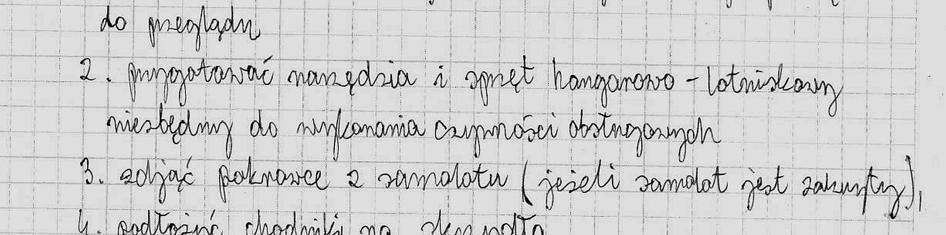 do przeglądu
2. przygotować narzędzia i sprzęt hangarowo - lotniskowy
niezbędny do wykonania czynności obsługowych
3. zdjąć pokrowce z samolotu (jeżeli samolot jest zakryty),
4. podłożyć chodniki na skrzydła